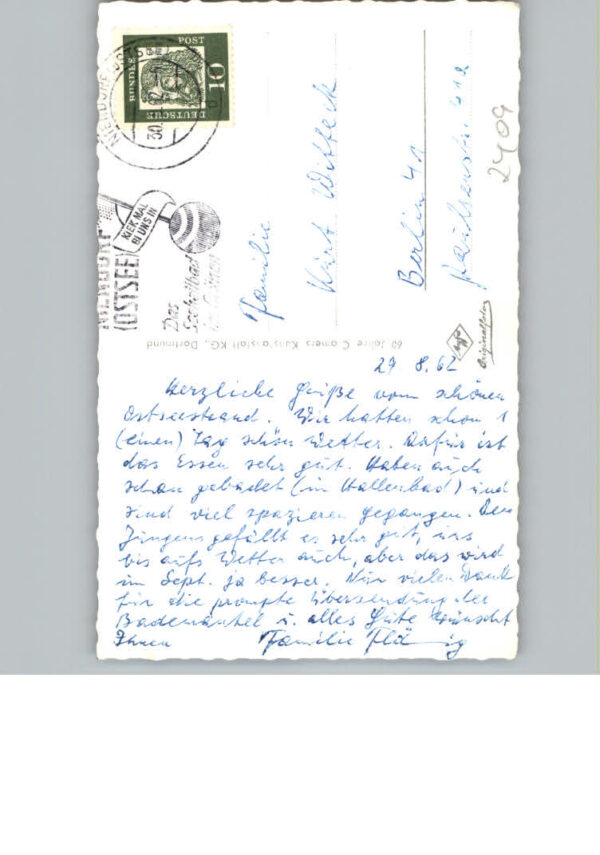 DEUTSCHE BUNDESPOST
10
NIENDORF OSTSEE
30.
KIEK MAL
BI UNS IN
NIENDORF
(OSTSEE)
Das
Seeheilbad
Familie
Kurt Witteck
Berlin 41
Paulsenstr.
2409
60 Jahre Camera Kunstanstalt KG., Dortmund
Agfa
Originalfoto
29.8.62
Herzliche Grüße vom schönen
Ostseestrand. Wir hatten schon 1
(einen) Tag schön Wetter. Dafür ist
das Essen sehr gut. Haben auch
schon gebadet (im Hallenbad) und
sind viel spazieren gegangen. Den
Jungens gefällt es sehr gut, uns
bis aufs Wetter auch, aber das wird
im Sept. ja besser. Nur vielen Dank
für die prompte Übersendung der
Bademäntel u. alles Gute wünscht
Ihnen Familie